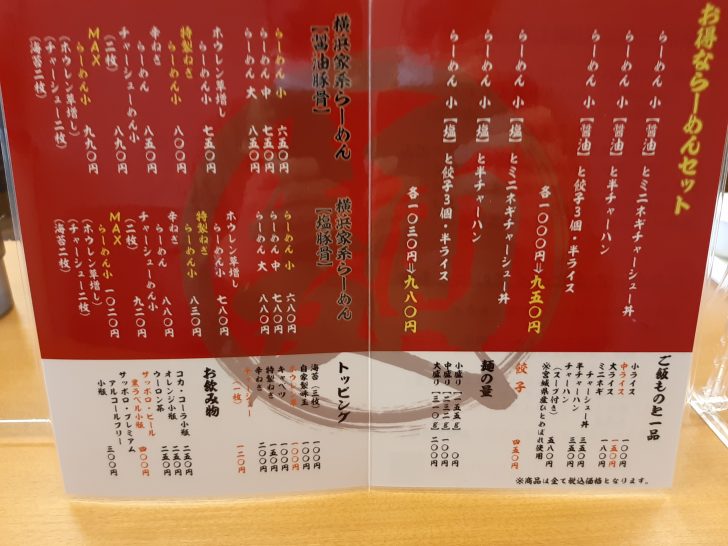 お得ならーめんセット
らーめん 小 【醤油】と ミニネギチャーシュー丼
らーめん 小 【醤油】と 半チャーハン
らーめん 小 【醤油】と 餃子3個・半ライス
各一〇〇〇円⇒九五〇円
らーめん 小 【塩】と ミニネギチャーシュー丼
らーめん 小 【塩】と 半チャーハン
らーめん 小 【塩】と 餃子3個・半ライス
各一〇三〇円⇒九八〇円
横浜家系らーめん
【醤油豚骨】
らーめん 小 六五〇円
らーめん 中 七五〇円
らーめん 大 八五〇円
ホウレン草増し
らーめん小 七五〇円
特製ねぎ
らーめん小 八〇〇円
辛ねぎ
らーめん 八五〇円
チャーシューめん小
(二枚) 八九〇円
MAX
らーめん小 九九〇円
(ホウレン草増し)
(チャーシュー二枚)
(海苔二枚)
横浜家系らーめん
【塩豚骨】
らーめん 小 六八〇円
らーめん 中 七八〇円
らーめん 大 八八〇円
ホウレン草増し
らーめん小 七八〇円
特製ねぎ
らーめん小 八三〇円
辛ねぎ
らーめん 八八〇円
チャーシューめん小
(二枚) 九二〇円
MAX
らーめん小 一〇二〇円
(ホウレン草増し)
(チャーシュー二枚)
(海苔二枚)
ご飯ものと一品
小ライス 一〇〇円
中ライス 一五〇円
大ライス
ミニネギ
チャーシュー丼 三五〇円
半チャーハン 三五〇円
チャーハン 五八〇円
(スープ付き)
※宮城県産ひとめぼれ使用
餃子 四五〇円
麺の量
小盛り(一五五g) 〇円
中盛り 一〇〇円
大盛り 二〇〇円
※商品は全て税込価格となります。
トッピング
海苔(三枚) 一〇〇円
自家製味玉 一〇〇円
キャベツ 一〇〇円
特製ねぎ
辛ねぎ 二〇〇円
(一枚) 一二〇円
お飲み物
コカ・コーラ小瓶 二五〇円
オレンジ小瓶 二五〇円
ウーロン茶 二五〇円
サッポロ・ビール
黒ラベル小瓶 四〇〇円
サッポロ・プレミアム
アルコールフリー
小瓶 三〇〇円